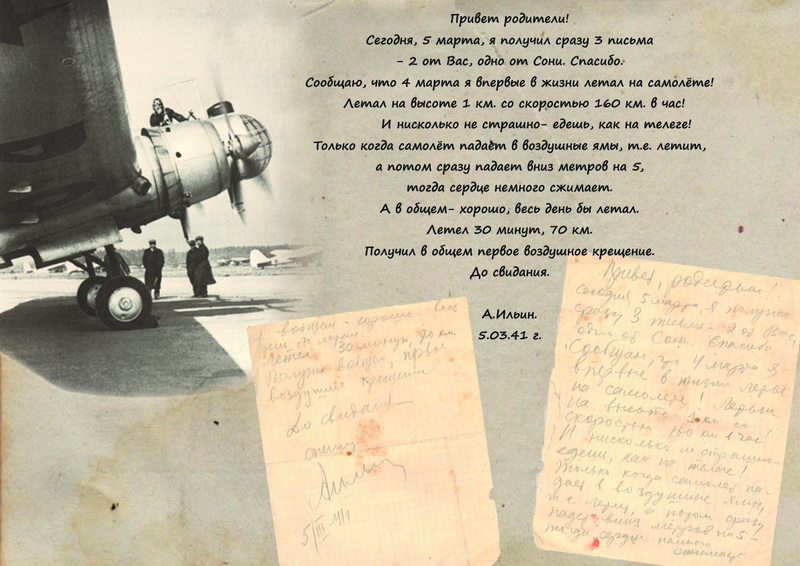 Привет родители!
Сегодня, 5 марта, я получил сразу 3 письма
- 2 от Вас, одно от Сони. Спасибо.
Сообщаю, что 4 марта я впервые в жизни летал на самолёте!
Летал на высоте 1 км. со скоростью 160 км. в час!
И нисколько не страшно- едешь, как на телеге!
Только когда самолёт падает в воздушные ямы, т.е. летит,
а потом сразу падает вниз метров на 5,
тогда сердце немного сжимает.
А в общем- хорошо, весь день бы летал.
Летел 30 минут, 70 км.
Получил в общем первое воздушное крещение.
До свидания.
А.Ильин.
5.03.41 г.
вобщем - хорошо весь
летел 30 минут, 70 км
Получил вобщем, первое
воздушное крещение
До свидан
Ильин
5/III-41
Привет, родители!
Сегодня, 5 марта, я получил
сразу 3 письма - 2 от Вас,
одно от Сони. Спасибо
Сообщаю, что 4 марта я
впервые в жизни летал
на самолете! Летал
на высоте 1 км со
скоростью 160 км в час!
И нисколько не страшно-
едеш, как на телеге!
Только когда самолет па-
дает в воздушные ямы,
т.е. летит, а потом сразу
падает вниз метров на 5-
тогда сердце немного
сжимает